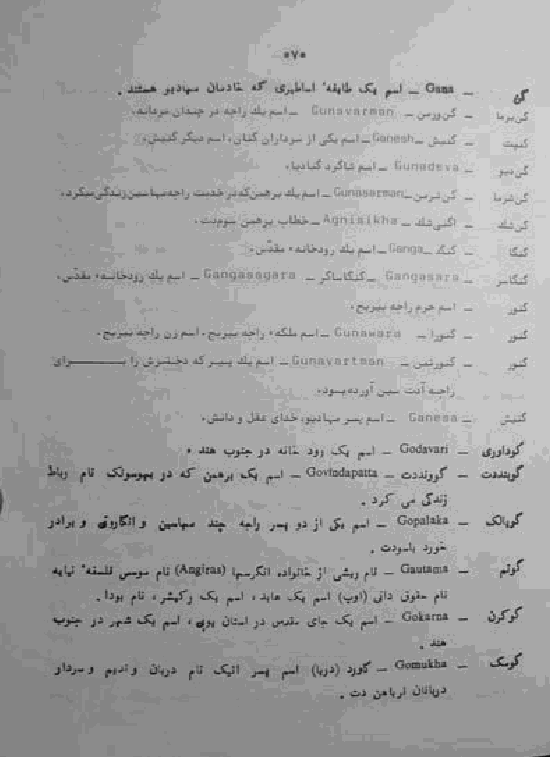 ۵۷۰
گن – Gana – اسم یک طایفه اساطیری که خادمان مهادیو هستند.
گن‌برما – گن‌ورمن – Gunavarman – اسم یك راجه
گنپت – گنیش – Ganesh – اسم یکی از سرداران گنان، اسم دیگر گنیش.
گن‌دیو – Gunadeva – اسم شاگرد گنادیا.
گن‌شرما – گن‌شرمن – Gunasarman – اسم یك برهمن که در خدمت راجه مهاسین زندگی میکرد.
گن‌شك – اگنی‌شك – Agnisikha – خطاب برهمن سوم‌دت.
گنگا – گنگ – Ganga – اسم یك رودخانهٔ مقدّس.
گنگاسر – Gangasara – گنگاساگر – Gangasagara – اسم یك رودخانهٔ مقدّس.
گنور – اسم حرم راجه
گنور – گنورا – Gunawara – اسم ملکهٔ راجه، اسم زن راجه
گنور – گنورتمن – Gunavartman – اسم یك که دخترش را برای
راجه آدت سین آورده بود.
گنیش – Ganesa – اسم پسر مهادیو، خدای عقل و دانش.
گوداوری – Godavari – اسم یک رود خانه در جنوب هند.
گوبنددت – گوونددت – Govindapatta – اسم یک برهمن که در نام رباط
زندگی می کرد.
گوپالک – Gopalaka – اسم یکی از دو پسر راجه چند مهاسین و انگاروتی و برادر
خورد باسودت.
گوتم – Gautama – نام ریشی از خانواده انگرسها (Angiras) نام موسس فلسفهٔ نیایه
نام حقوق دانی اسم یک عابد، اسم یک رکهیشر، نام بودا.
گوکرن – Gokarna – اسم یک جای مقدس در استان اسم یک شهر در جنوب
هند.
گومک – Gomukha – گاورد (دریا) اسم پسر اتیک نام دربان و ندیم و سردار
دربانان نرباهن دت.